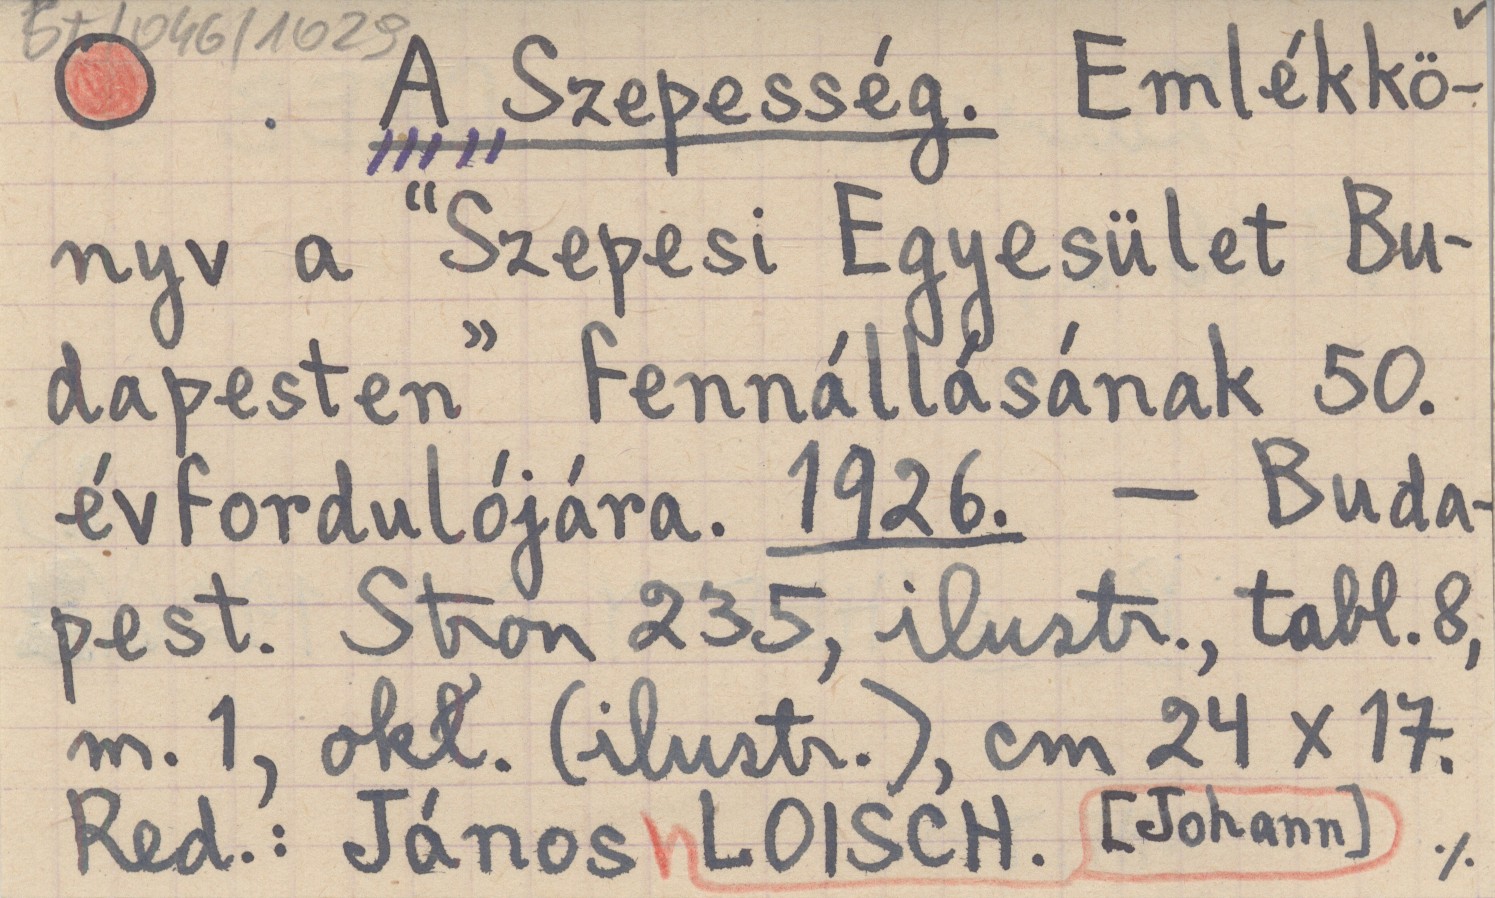 046/1029
. A Szepesség. Emlékkö-
nyv a “Szepesi Egyesület Bu-
dapesten” fennállásának 50.
évfordulójára. 1926. — Buda-
pest. Stron 235, ilustr., tabl. 8,
m. 1, okł. (ilustr.), cm 24 x 17.
Red.: János LOISCH. [Johann] ./.